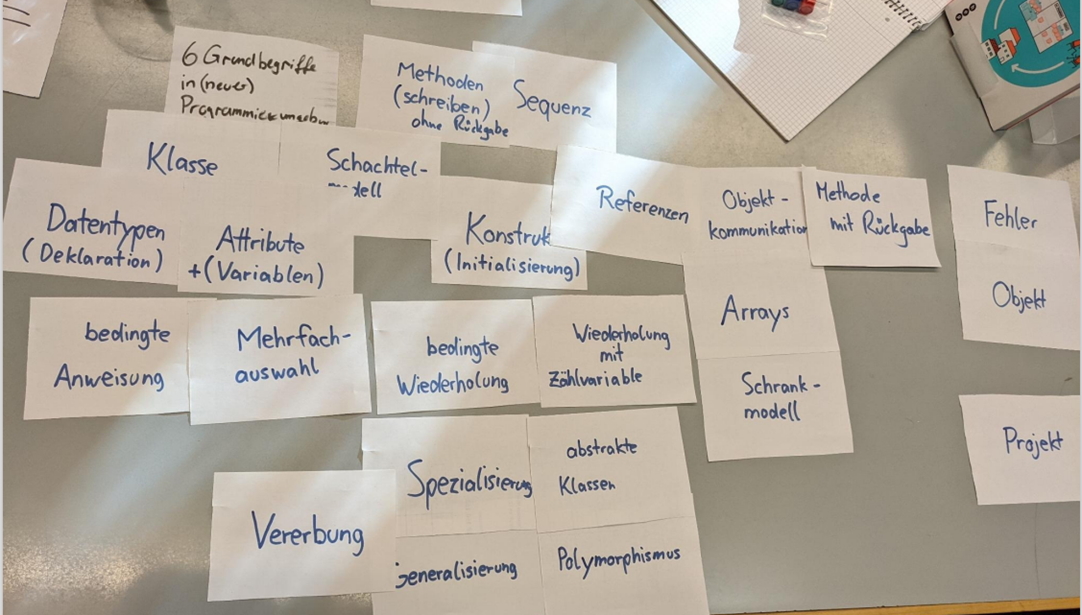 6 Grundbegriffe
in (neuer)
Methoden
(schreiben)
ohne Rückgabe
Sequenz
Klasse
Schachtel-
Referenzen
Objekt-
kommunikation
Methode
mit Rückgabe
Fehler
Datentypen
(Deklaration)
Attribute
+(Variablen)
Konstruk
(Initialisierung)
Arrays
Objekt
bedingte
Anweisung
Mehrfach-
auswahl
bedingte
Wiederholung
Wiederholung
mit
Zählvariable
Schrank-
modell
Projekt
Spezialisierung
abstrakte
Klassen
Vererbung
Generalisierung
Polymorphismus